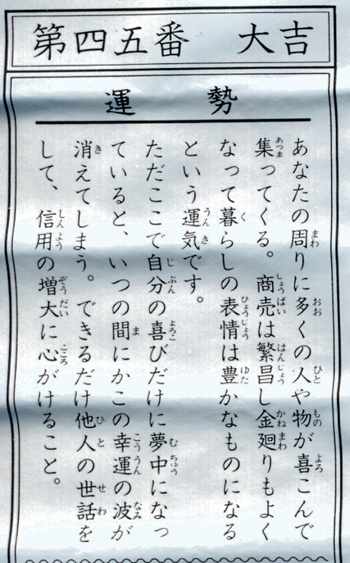 第四五番　大吉
運勢
あなたの周りに多くの人や物が喜こんで
集ってくる。商売は繁昌し金廻りもよく
なって暮らしの表情は豊かなものになる
という運気です。
ただここで自分の喜びだけに夢中になっ
ていると、いつの間にかこの幸運の波が
消えてしまう。できるだけ他人の世話を
して、信用の増大に心がけること。